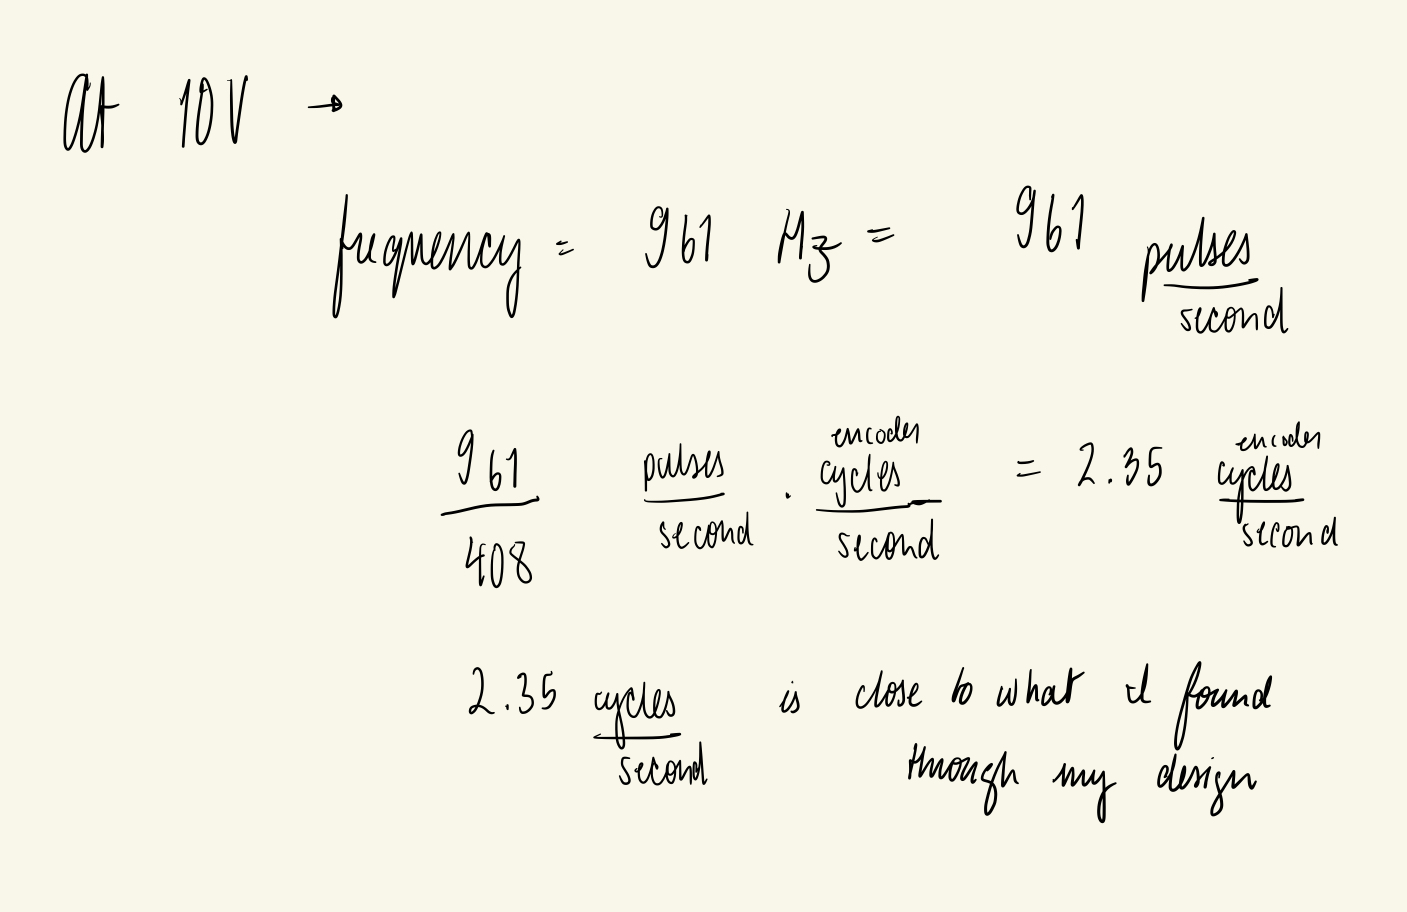 At 10V →
frequency = 961 Hz = 961 pulses/second
961/408 pulses/second · encoder cycles/second = 2.35 encoder cycles/second
2.35 cycles/second is close to what I found
through my design